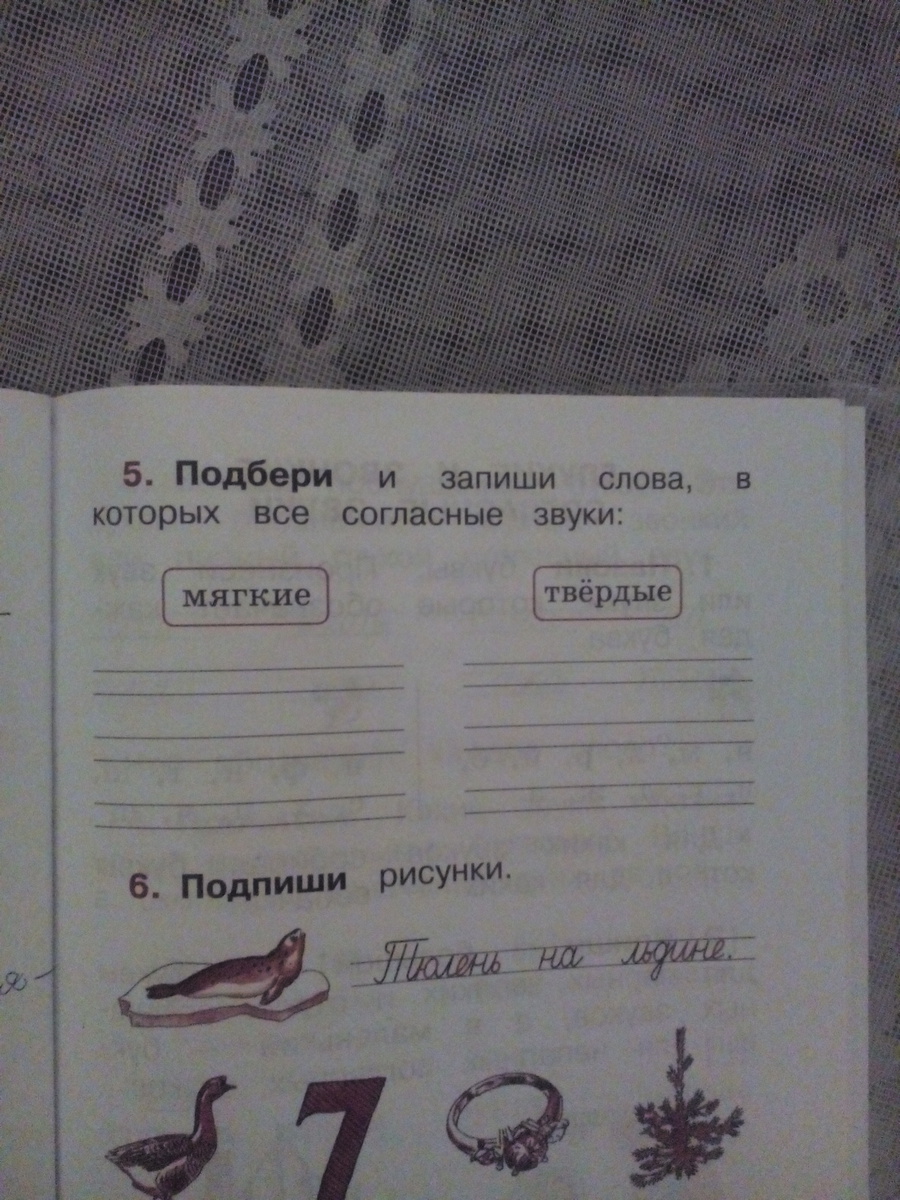 5. Подбери и запиши слова, в
которых все согласные звуки:
мягкие твёрдые
6. Подпиши рисунки.
Тюлень на льдине.
7
я-